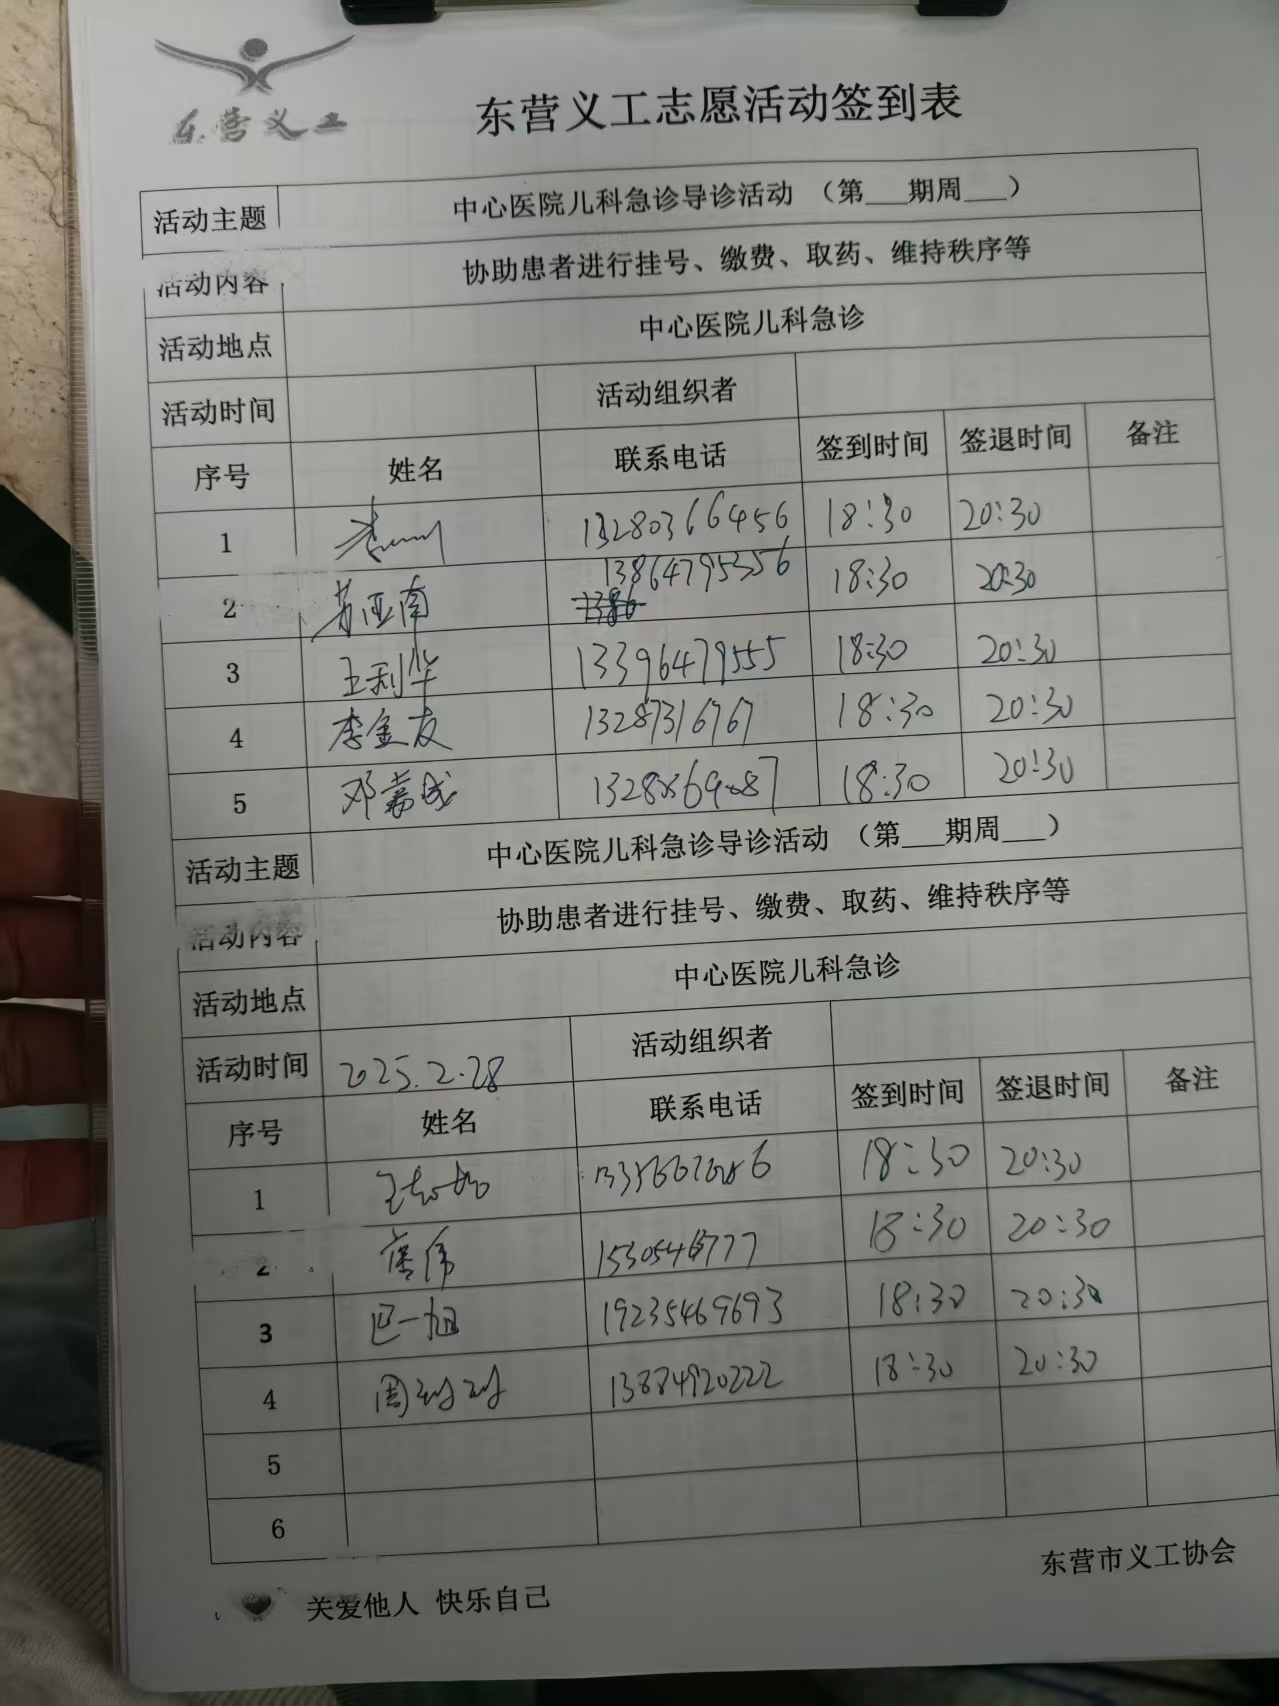 东营义工
东营义工志愿活动签到表
活动主题 中心医院儿科急诊导诊活动 （第___期周___）
活动内容 协助患者进行挂号、缴费、取药、维持秩序等
活动地点 中心医院儿科急诊
活动时间 活动组织者
序号 姓名 联系电话 签到时间 签退时间 备注
1 13280366456 18:30 20:30
2 苏亚南 13864795356 18:30 20:30
3 王利华 13396479555 18:30 20:30
4 李金友 13287316767 18:30 20:30
5 邓嘉成 18:30 20:30
活动主题 中心医院儿科急诊导诊活动 （第___期周___）
活动内容 协助患者进行挂号、缴费、取药、维持秩序等
活动地点 中心医院儿科急诊
活动时间 2025.2.28 活动组织者
序号 姓名 联系电话 签到时间 签退时间 备注
1 18:30 20:30
2 18:30 20:30
3 19235469693 18:30 20:30
4 13884920222 18:30 20:30
5
6
东营市义工协会
关爱他人 快乐自己